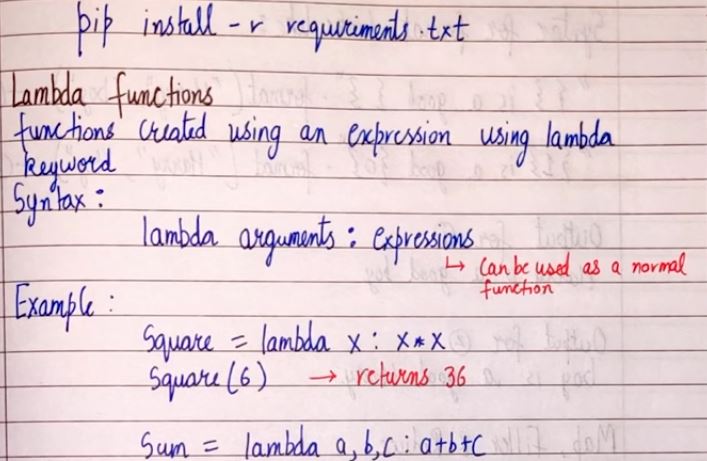 pip install -r requirements.txt
Lambda functions
functions created using an expression using lambda
keyword
Syntax :
lambda arguments : expressions
↳ Can be used as a normal
function
Example :
Square = lambda x : x*x
Square (6) → returns 36
Sum = lambda a, b, c : a+b+c